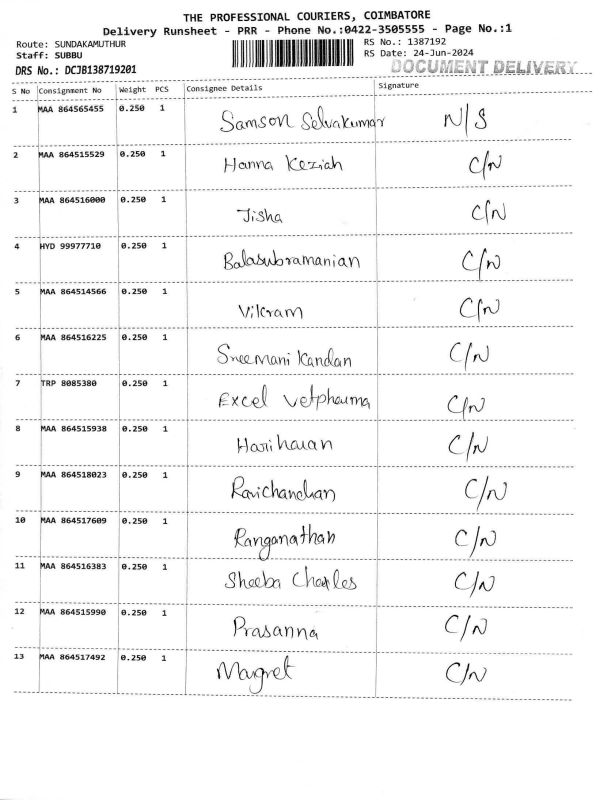 THE PROFESSIONAL COURIERS, COIMBATORE
Delivery Runsheet - PRR - Phone No.:0422-3505555 - Page No.:1
Route: SUNDAKAMUTHUR RS No.: 1387192
Staff: SUBBU RS Date: 24-Jun-2024
DRS No.: DCJB138719201 DOCUMENT DELIVERY
S No Consignment No Weight PCS Consignee Details Signature
1 MAA 864565455 0.250 1 Samson Selvakumar N/S
2 MAA 864515529 0.250 1 Hanna Keziah C/N
3 MAA 864516000 0.250 1 Jisha C/N
4 HYD 99977710 0.250 1 Balasubramanian C/N
5 MAA 864514566 0.250 1 Vikram C/N
6 MAA 864516225 0.250 1 Sreemani Kandan C/N
7 TRP 8085380 0.250 1 Excel Vetpharma C/N
8 MAA 864515938 0.250 1 Hariharan C/N
9 MAA 864518023 0.250 1 Ravichandran C/N
10 MAA 864517609 0.250 1 Ranganathan C/N
11 MAA 864516383 0.250 1 Sheeba Charles C/N
12 MAA 864515990 0.250 1 Prasanna C/N
13 MAA 864517492 0.250 1 Margret C/N